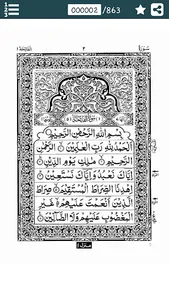 000002 /863
بِسْمِ اللّٰهِ الرَّحْمٰنِ الرَّحِيْمِ
اَلْحَمْدُ لِلّٰهِ رَبِّ الْعٰلَمِيْنَ ۙ الرَّحْمٰنِ
الرَّحِيْمِ ۙ مٰلِكِ يَوْمِ الدِّيْنِ ؕ
اِيَّاكَ نَعْبُدُ وَاِيَّاكَ نَسْتَعِيْنُ ؕ
اِهْدِنَا الصِّرَاطَ الْمُسْتَقِيْمَ ۙ صِرَاطَ
الَّذِيْنَ اَنْعَمْتَ عَلَيْهِمْ ۙ غَيْرِ
الْمَغْضُوْبِ عَلَيْهِمْ وَلَا الضَّآلِّيْنَ